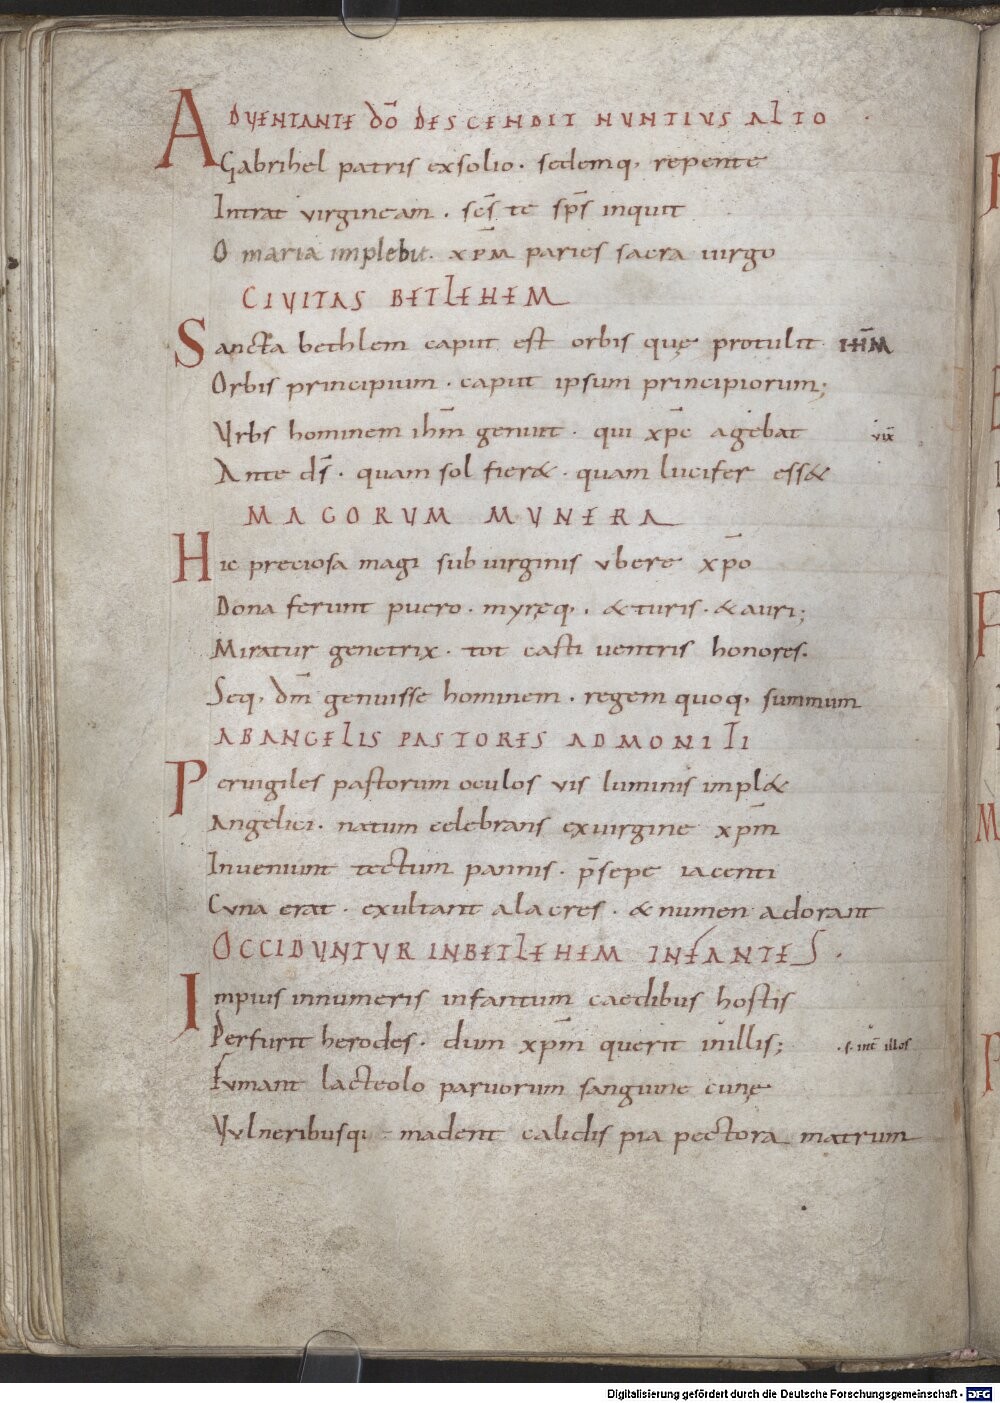 ADVENTANTE dō DESCENDIT NUNTIUS ALTO
Gabrihel patris exsolio. sedemq, repente
Intrat virgineam. scs̄ te sps̄ inquit
O maria implebit. xp̄m paries sacra uirgo
CIVITAS BETLEHEM
Sancta bethlem caput est orbis quę protulit ih̄m
Orbis principium. caput ipsum principiorum;
Vrbs hominem ih̄m genuit. qui xp̄c agebat vix̄
Ante ds̄. quam sol fier&. quam lucifer ess&
MAGORUM MUNERA
Hic preciosa magi sub uirginis ubere xp̄o
Dona ferunt puero. myręq,. &turis. &auri;
Miratur genetrix. tot casti uentris honores.
Seq, dm̄ genuisse hominem. regem quoq, summum
ABANGELIS PASTORES ADMONITI
Peruigiles pastorum oculos vis luminis impl&
Angelici. natum celebrans exuirgine xp̄m
Inueniunt tectum pannis. p̄sepe iacenti
Cuna erat. exultant alacres. & numen adorant
OCCIDUNTUR INBETLEHEM INFANTES.
Impius innumeris infantum caedibus hostis
Perfurit herodes. dum xp̄m querit inillis; .s. int̄ illos
Fumant lacteolo paruorum sanguine cunę
Vulneribusqi madent calidis pia pectora matrum
Digitalisierung gefördert durch die Deutsche Forschungsgemeinschaft - DFG